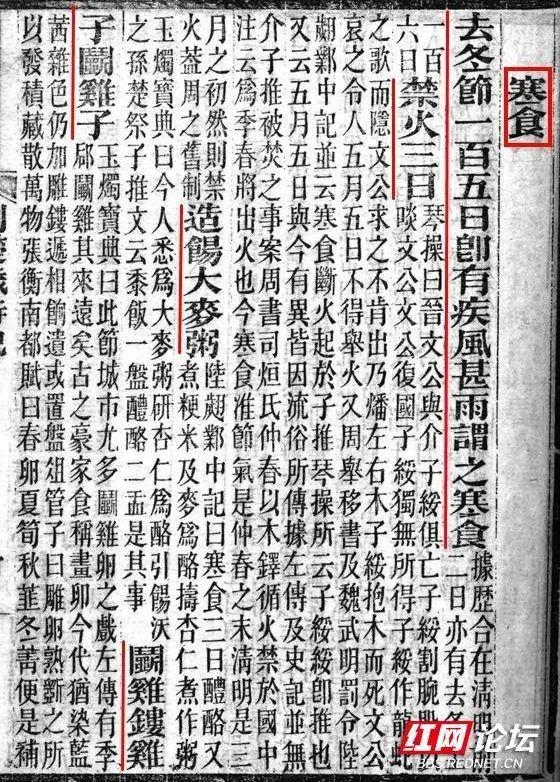 寒食
去冬節一百五日卽有疾風甚雨謂之寒食
據歷合在清明
二日亦有去冬
一百
六日
禁火三日
琴操曰晉文公與介子綏俱亡子綏割腕股
啖文公文公復國子綏獨無所得子綏作龍蛇
之歌而隱文公求之不肯出乃燔左右木子綏抱木而死文公
哀之令人五月五日不得舉火又周舉移書及魏武明罰令陸
翽鄴中記並云寒食斷火起於子推琴操所云子綏綏卽推也
又云五月五日與今有異皆因流俗所傳據左傳及史記並無
介子推被焚之事案周書司烜氏仲春以木鐸循火禁於國中
注云爲季春將出火也今寒食准節氣是仲春之末清明是三
月之初然則禁
火蓋周之舊制
造餳大麥粥
陸翽鄴中記曰寒食三日醴酪又
煮粳米及麥爲酪擣杏仁煮作粥
玉燭寶典曰今人悉爲大麥粥研杏仁爲酪引餳沃
之孫楚祭子推文云黍飯一盤醴酪二盂是其事
鬭雞鏤雞
子鬭雞子
玉燭寶典曰此節城市尤多鬭雞卵之戲左傳有季
郈鬭雞其來遠矣古之豪家食稱畫卵今代猶染藍
茜雜色仍加雕鏤遞相餉遺或置盤俎管子曰雕卵熟斲之所
以發積藏散萬物張衡南都賦曰春卵夏筍秋韮冬菁便是補
红网论坛
BBS.REDNET.CN